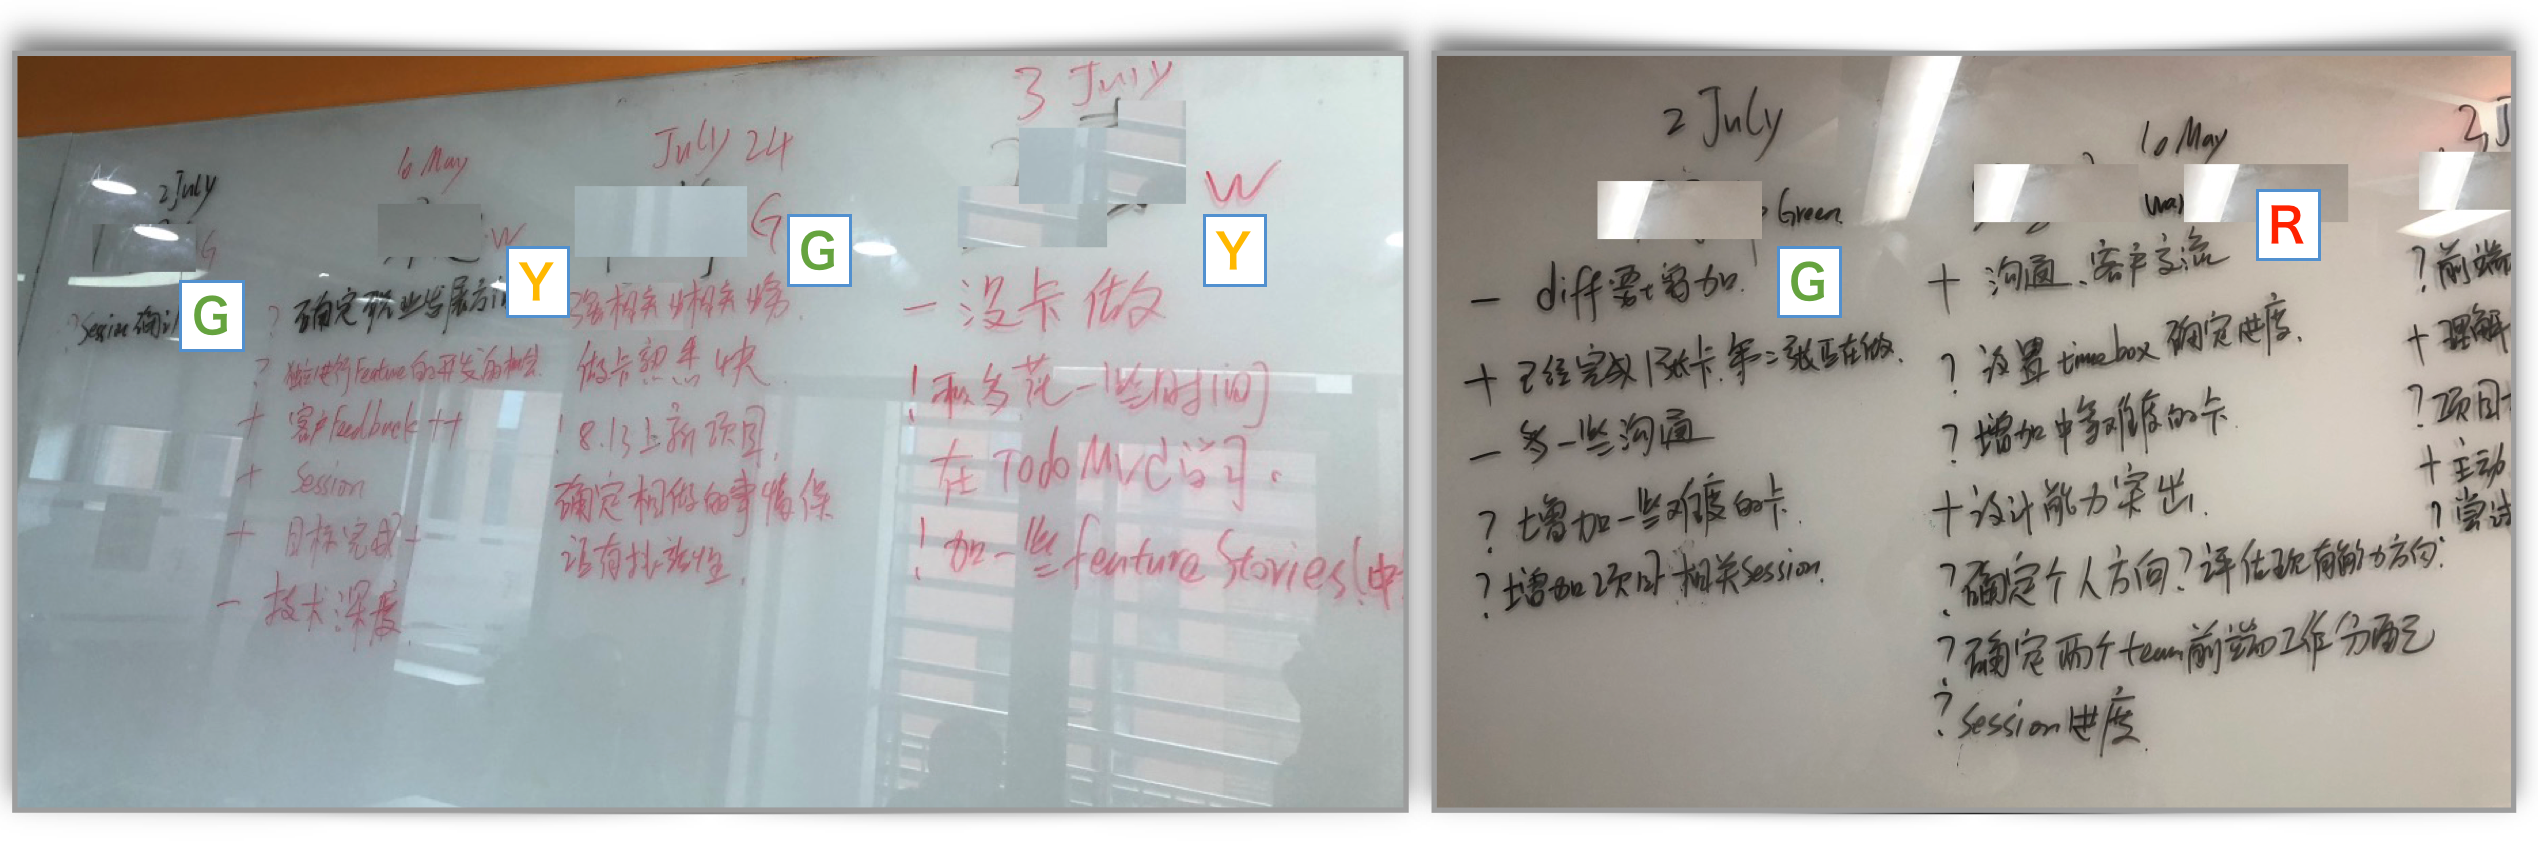 2 July
G
G
?Session确认
10 May
W
Y
? 确定职业发展方向
? 独立进行Feature的开发的机会
+ 客户Feedback ++
+ Session
+ 目标完成+
- 技术深度
July 24
G
G
做卡熟悉快
! 8.13上新项目,
确定想做的事情保
证有挑战性.
3 July
W
Y
- 没卡做
! 积多花一些时间
在TodoMVC学习.
! 加一些feature Stories(中
2 July
Green
G
- diff要增加.
+ 已经完成1张卡.第二张正在做.
- 多一些沟通
? 增加一些难度的卡.
? 增加项目相关Session.
10 May
R
+ 沟通、客户交流
? 设置timebox确定进度.
? 增加中等难度的卡.
+ 设计能力突出.
? 确定个人方向?评估现有能力方向.
? 确定两个team前端工作分配
? Session进度.
2 J
? 前端
+ 理解
? 项目
+ 主动
? 尝试